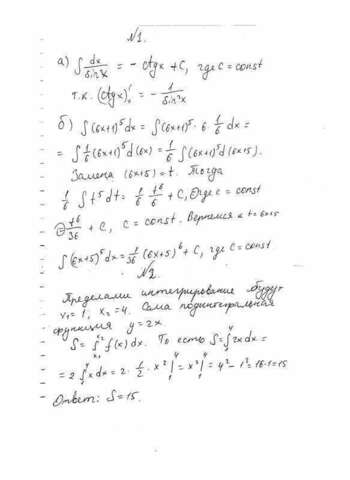 №1.
а) ∫ dx/sin²x = - ctgx + C, где C = const
т.к. (ctgx)'ₓ = - 1/sin²x
б) ∫(6x+1)⁵dx = ∫(6x+1)⁵ · 6 · 1/6 dx =
= ∫ 1/6 (6x+1)⁵ d(6x) = 1/6 ∫(6x+1)⁵ d(6x+5).
Замена (6x+5) = t. Тогда
1/6 ∫ t⁵dt = 1/6 · t⁶/6 + C, где C = const
= t⁶/36 + C, C = const. Вернемся к t = 6x+5
∫(6x+5)⁵dx = 1/36 (6x+5)⁶ + C, где C = const
№2.
Пределами интегрирования будут
x₁ = 1, x₂ = 4. Сама подинтегральная
функция y = 2x
S = ∫ₓ₁ˣ² f(x)dx. То есть S = ∫₁⁴ 2x dx =
= 2 ∫₁⁴ x dx = 2 · 1/2 · x² |₁⁴ = x² |₁⁴ = 4² - 1² = 16-1 = 15
Ответ: S = 15.